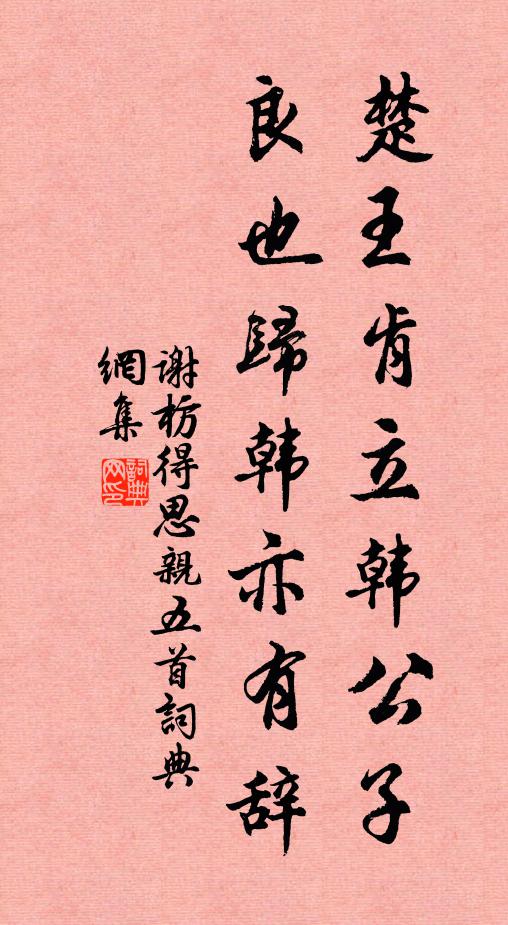 楚王肯立韩公子
良也歸韩亦有辞
谢枋得思親五首詞典
網集
詞典
网印